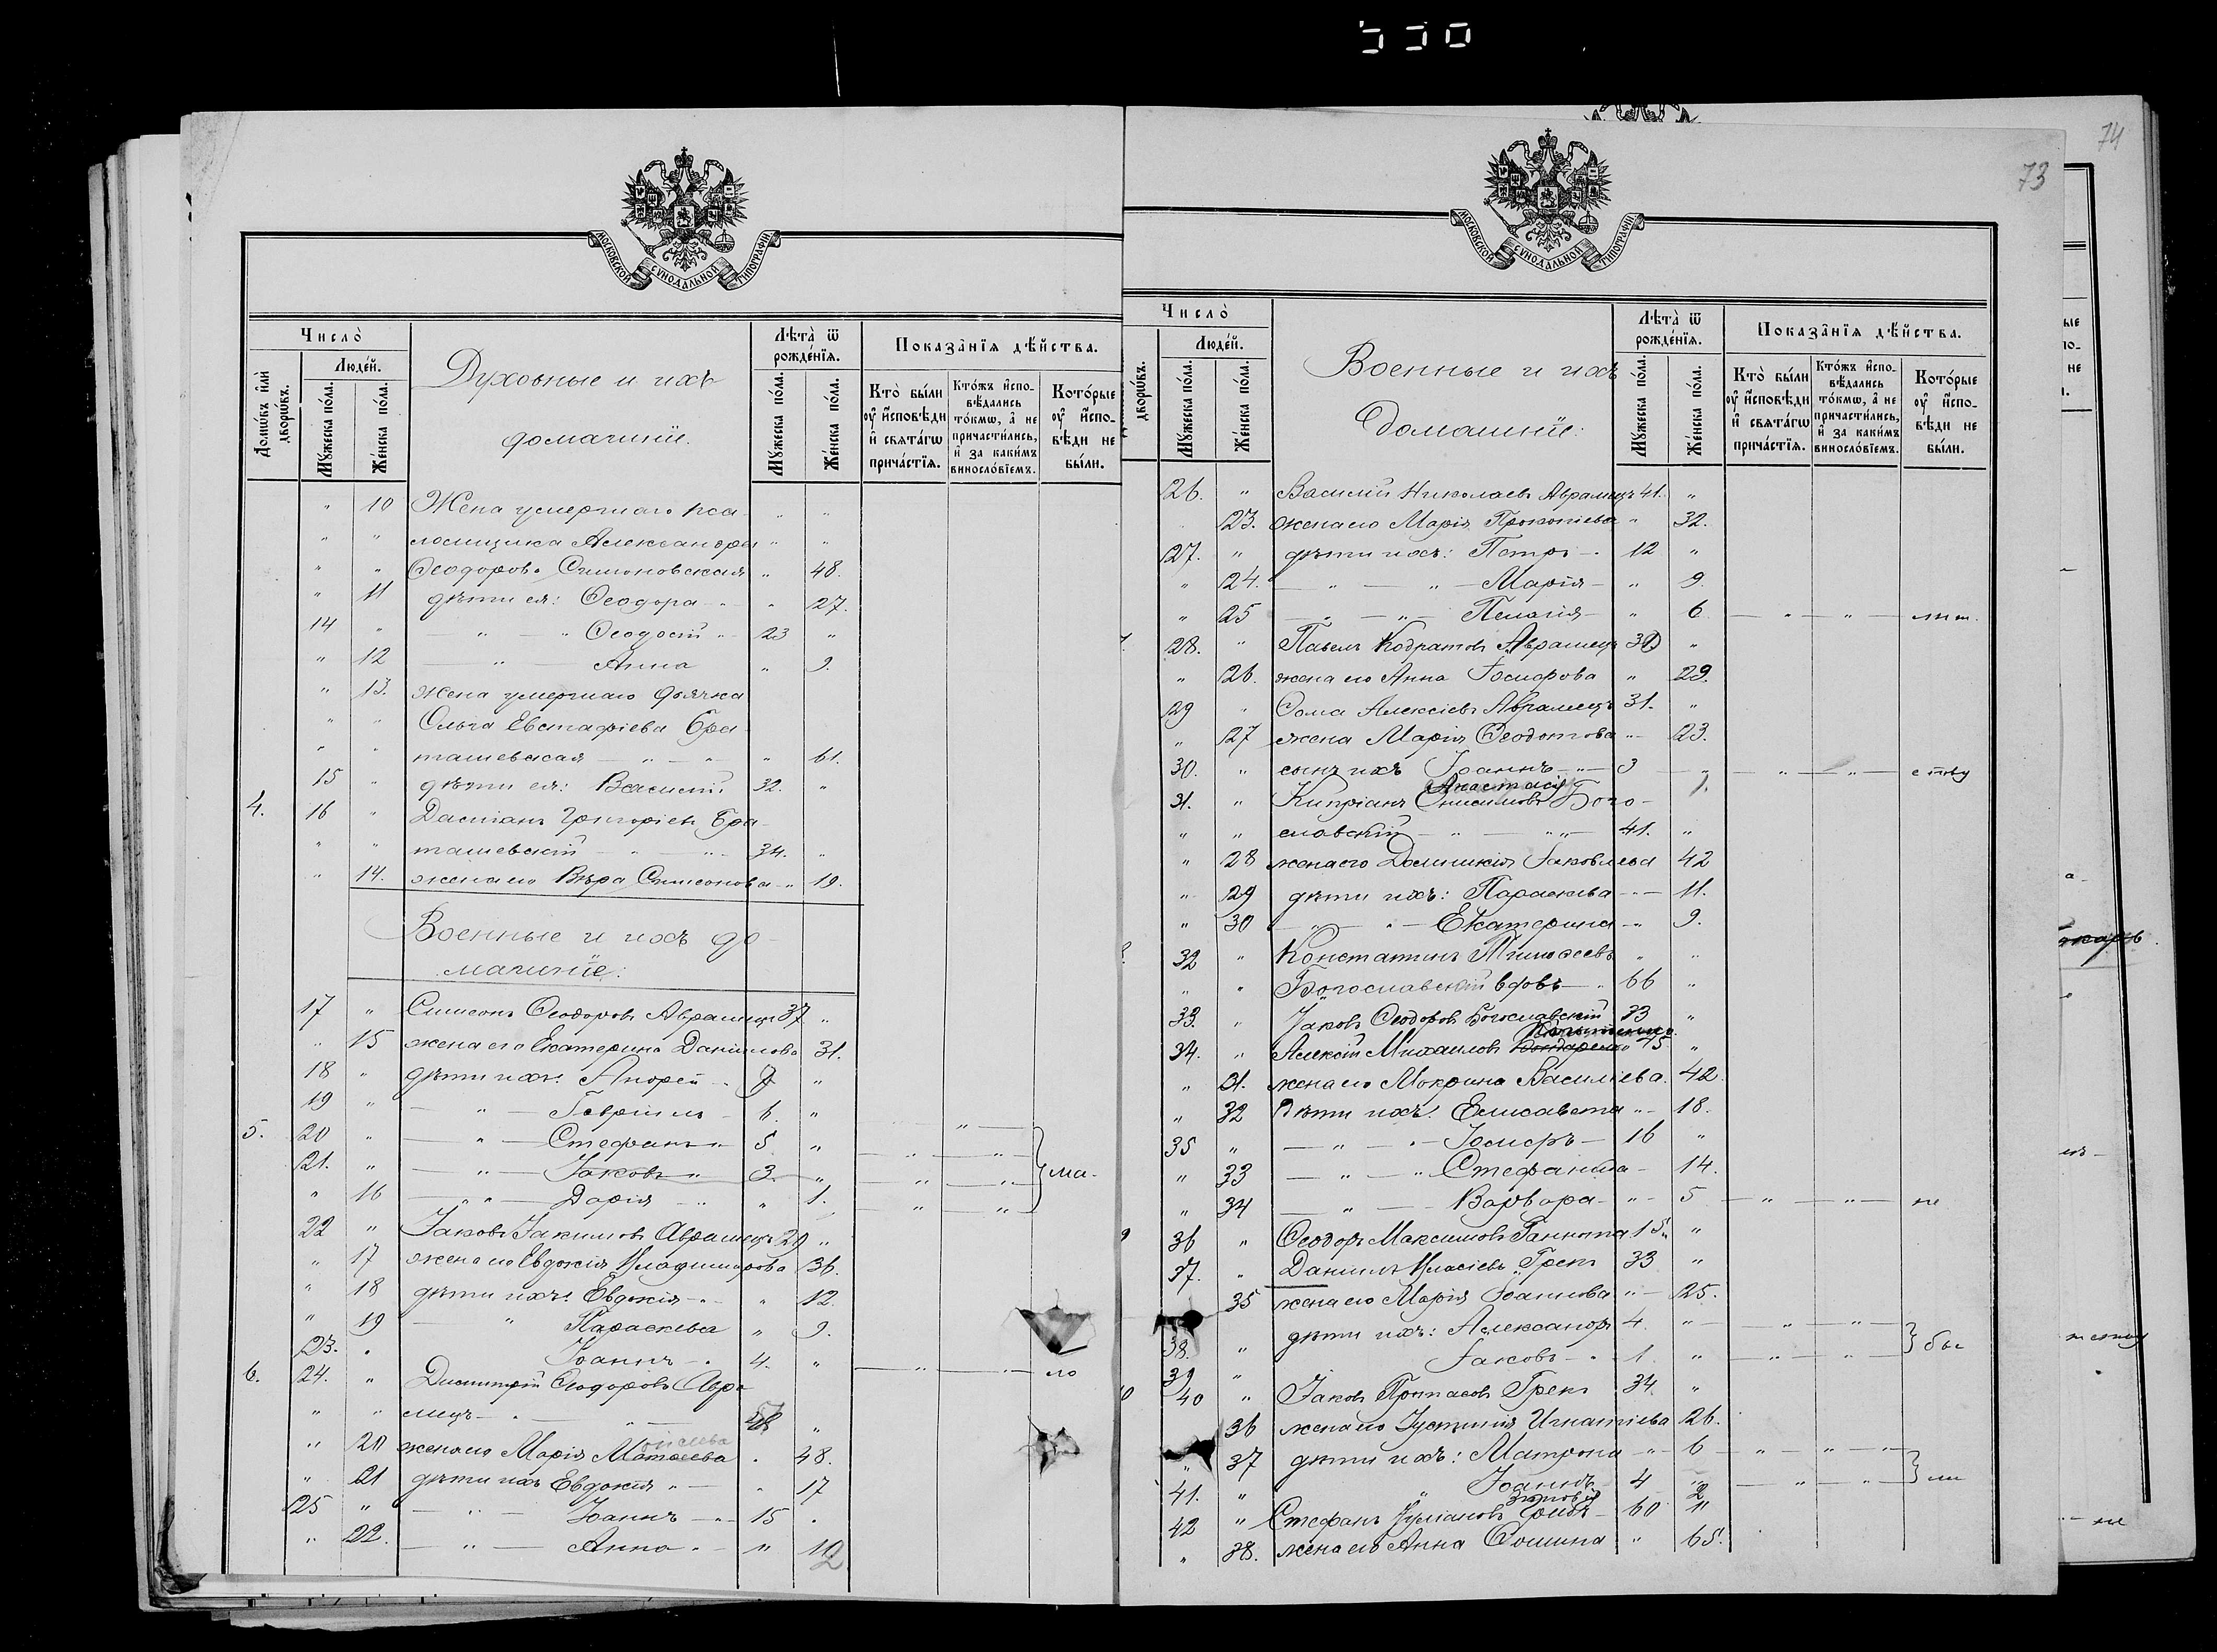 73
74
МОСКОВСКОЙ СУНОДАЛЬНОЙ ТИПОГРАФІИ
Число̀
Людѐй.
Домѡ́въ и҆лѝ дворѡ́въ.
Мꙋ́жеска по́ла.
Же́нска по́ла.
Духовные и ихъ
домашніе.
Лѣ́та ѿ рожде́нїѧ.
Мꙋ́жеска по́ла.
Же́нска по́ла.
Показа̑нїѧ дѣ́йства.
Кто̀ бы́ли ᲂу҆ и҆́сповѣди и҆ свѧта́гѡ прича́стїѧ.
Кто́жъ и҆сповѣ́дались то́кмѡ, а҆ не причасти́лись, и҆ за каки́мъ винословїемъ.
Кото́рые ᲂу҆ и҆́сповѣди не бы́ли.
" 10 Жена умершаго пса- " "
" " ломщика Александра " "
" " Ѳеодорова Симоновская " 48.
" 11 дѣти ея: Ѳеодора " 27.
14 " " " Ѳеодосій 23 "
" 12 " Анна " 9.
" 13. Жена умершаго дьячка
" " Ольга Евстафіева Бра-
" " ташевская " " " 61.
15 " дѣти ея: Василій 32. "
4. 16 " Даміанъ Григоріевъ Бра-
" " ташевскій " " 34. "
" 14. жена его Вѣра Симеонова " 19.
Военные и ихъ до-
машніе:
17 " Симеонъ Ѳеодоровъ Аврамецъ 37 "
" 15 жена его Екатерина Даніилова 31.
18 " дѣти ихъ: Андрей "
19 " " Гавріилъ 6. "
5. 20 " " Стефанъ 5 " " "
21. " " Іаковъ " 3. " " " ма-
" 16 " " Дарія " " 1. " "
22 " Іаковъ Іакимовъ Аврамецъ 29 "
" 17 жена его Евдокія Владимирова 36.
" 18 дѣти ихъ: Евдокія " " 12.
" 19 " Параскева " 9.
23. " Іоаннъ " 4. " " " ло
6. 24. " Димитрій Ѳеодоровъ Авра
" " мецъ " " "
" 20 жена его Марія Матѳеева " 48.
" 21 дѣти ихъ Евдокія " " 17
25 " " Іоаннъ " 15 "
" 22. " Анна " " 12
Число̀
дворѡ́въ.
Людѐй.
Мꙋ́жеска по́ла.
Же́нска по́ла.
Военные и ихъ
Домашніе:
Лѣ́та ѿ рожде́нїѧ.
Мꙋ́жеска по́ла.
Же́нска по́ла.
Показа̑нїѧ дѣ́йства.
Кто̀ бы́ли ᲂу҆ и҆́сповѣди и҆ свѧта́гѡ прича́стїѧ.
Кто́жъ и҆сповѣ́дались то́кмѡ, а҆ не причасти́лись, и҆ за каки́мъ винословїемъ.
Кото́рые ᲂу҆ и҆́сповѣди не бы́ли.
26. " Василій Николаевъ Аврамецъ 41. "
23. жена его Марія Прокопіева " 32.
27. " дѣти ихъ: Петръ 12 "
" 24. " " Марія " 9.
" 25 " " Пелагія " 6 " "
28. " Павелъ Кодратовъ Аврамецъ "
" 26. жена его Анна Іосифова " 29.
29 " Ѳома Алексіевъ Аврамецъ 31. "
" 27 жена Марія Ѳеодотова " 23.
30. " сынъ ихъ Іоаннъ " 3 " " "
Анастасія 1.
31. " Кипріанъ Онисимовъ Бого-
" " славскій " " " 41. "
" 28 жена его Домникія Іаковлева 42
" 29 дѣти ихъ: Параскева " 11.
" 30 " " Екатерина " 9.
32 " Константинъ Тимоѳеевъ " "
" " Богославскій вдовъ " 66 "
33. " Іаковъ Ѳеодоровъ Богославскій 33 "
34. " Алексій Михаиловъ 45 "
" 31. жена его Мокрина Василіева. 42.
" 32 Дѣти ихъ: Елисавета " 18.
35 " " " Іосифъ 16 "
" 33 " " Стефанида 14.
" 34 " Варвара " 5 " " не
36 " Ѳеодоръ Максимовъ Ганнота 15 "
37. " Даніилъ Власіевъ Грекъ 33 "
35 жена его Марія Іоаннова " 25.
38. " дѣти ихъ: Александръ 4 " " "
39 " Іаковъ " 1. " " " бы
40 " Іаковъ Грекъ 34 "
36 жена его Іустинія Игнатіева 26.
" 37 дѣти ихъ: Матрона " 6 " " "
41. " " Іоаннъ 4 " " " ли
Зиновія 2
42 " Стефанъ Іуліановъ 60 "
" 38. жена его Анна Ѳомина " 65.
не